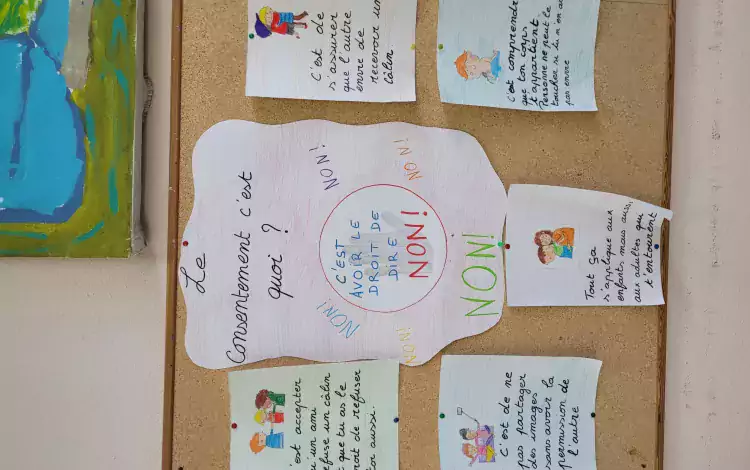 Le
Consentement c'est
quoi ?
NON!
NON!
C'EST
AVOIR LE
DROIT DE
DIRE
NON!
NON!
NON!
NON!
C'est de
s'assurer
que l'autre
envie de
recevoir un
câlin
C'est comprendre
que ton corps
t'appartient
Personne ne peut le
toucher si tu n'en as
pas envie
Tout ça
s'applique aux
enfants mais aussi,
aux adultes qui
t'entourent
C'est de ne
pas partager
des images
sans avoir la
permission de
l'autre
est accepter
u'un ami
efuse un câlin
t que tu as le
roit de refuser
toi aussi.